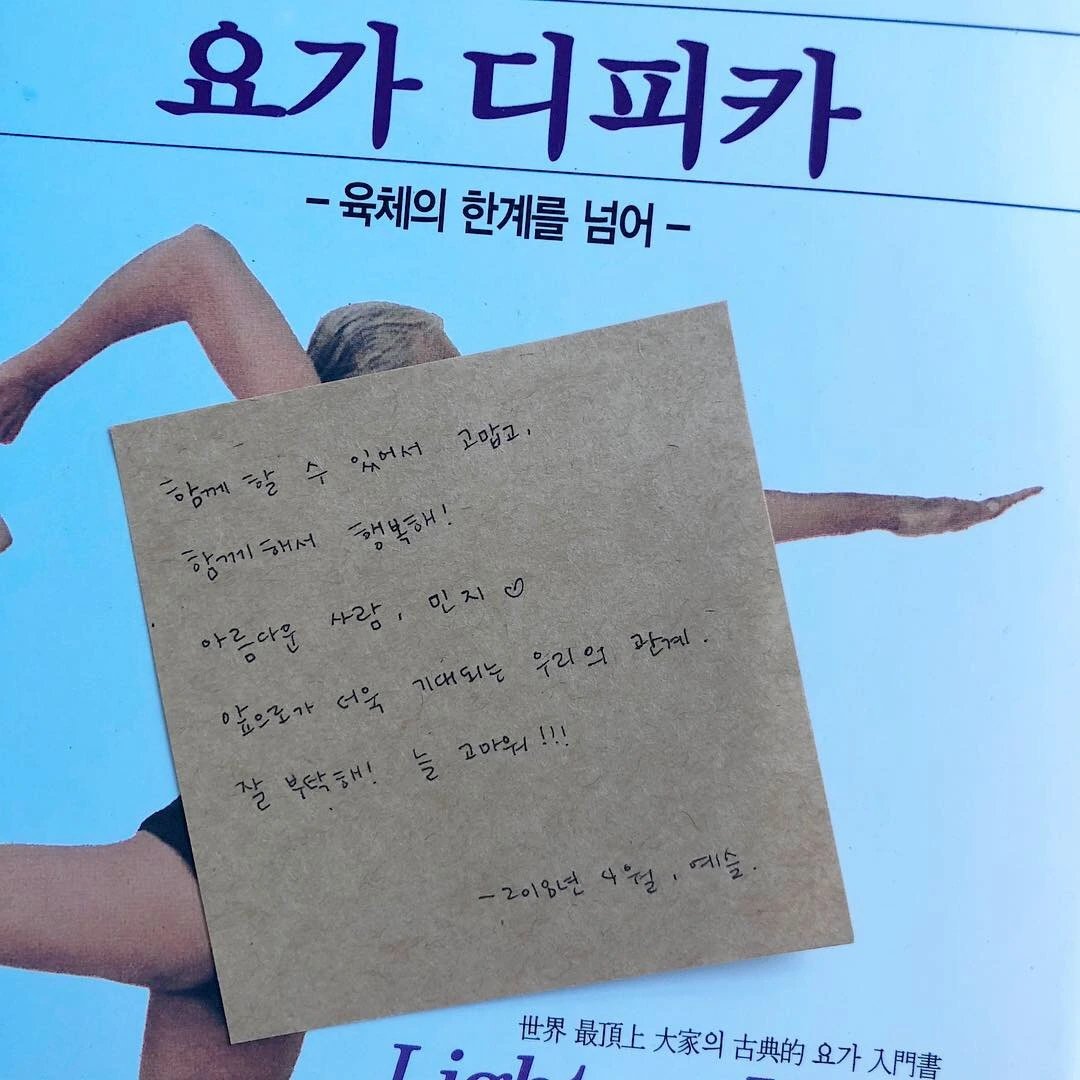 요가 디피카
- 육체의 한계를 넘어 -
함께 할 수 있어서 고맙고,
함께해서 행복해!
아름다운 사람, 민지 ♡
앞으로가 더욱 기대되는 우리의 관계.
잘 부탁해! 늘 고마워!!!
- 2018년 4월, 예슬.
世界 最頂上 大家의 古典的 요가 入門書
Light